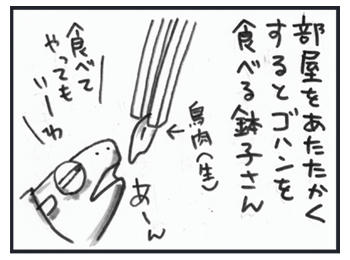 部屋をあたたかく
するとゴハンを
食べる鉢子さん
鳥肉(生)
あーん
食べて
やっても
いーわ